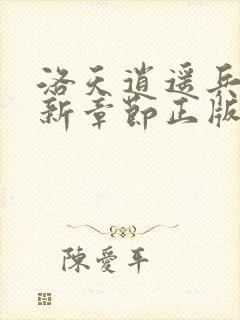 洛天逍遥兵
新章節正版
陳愛平